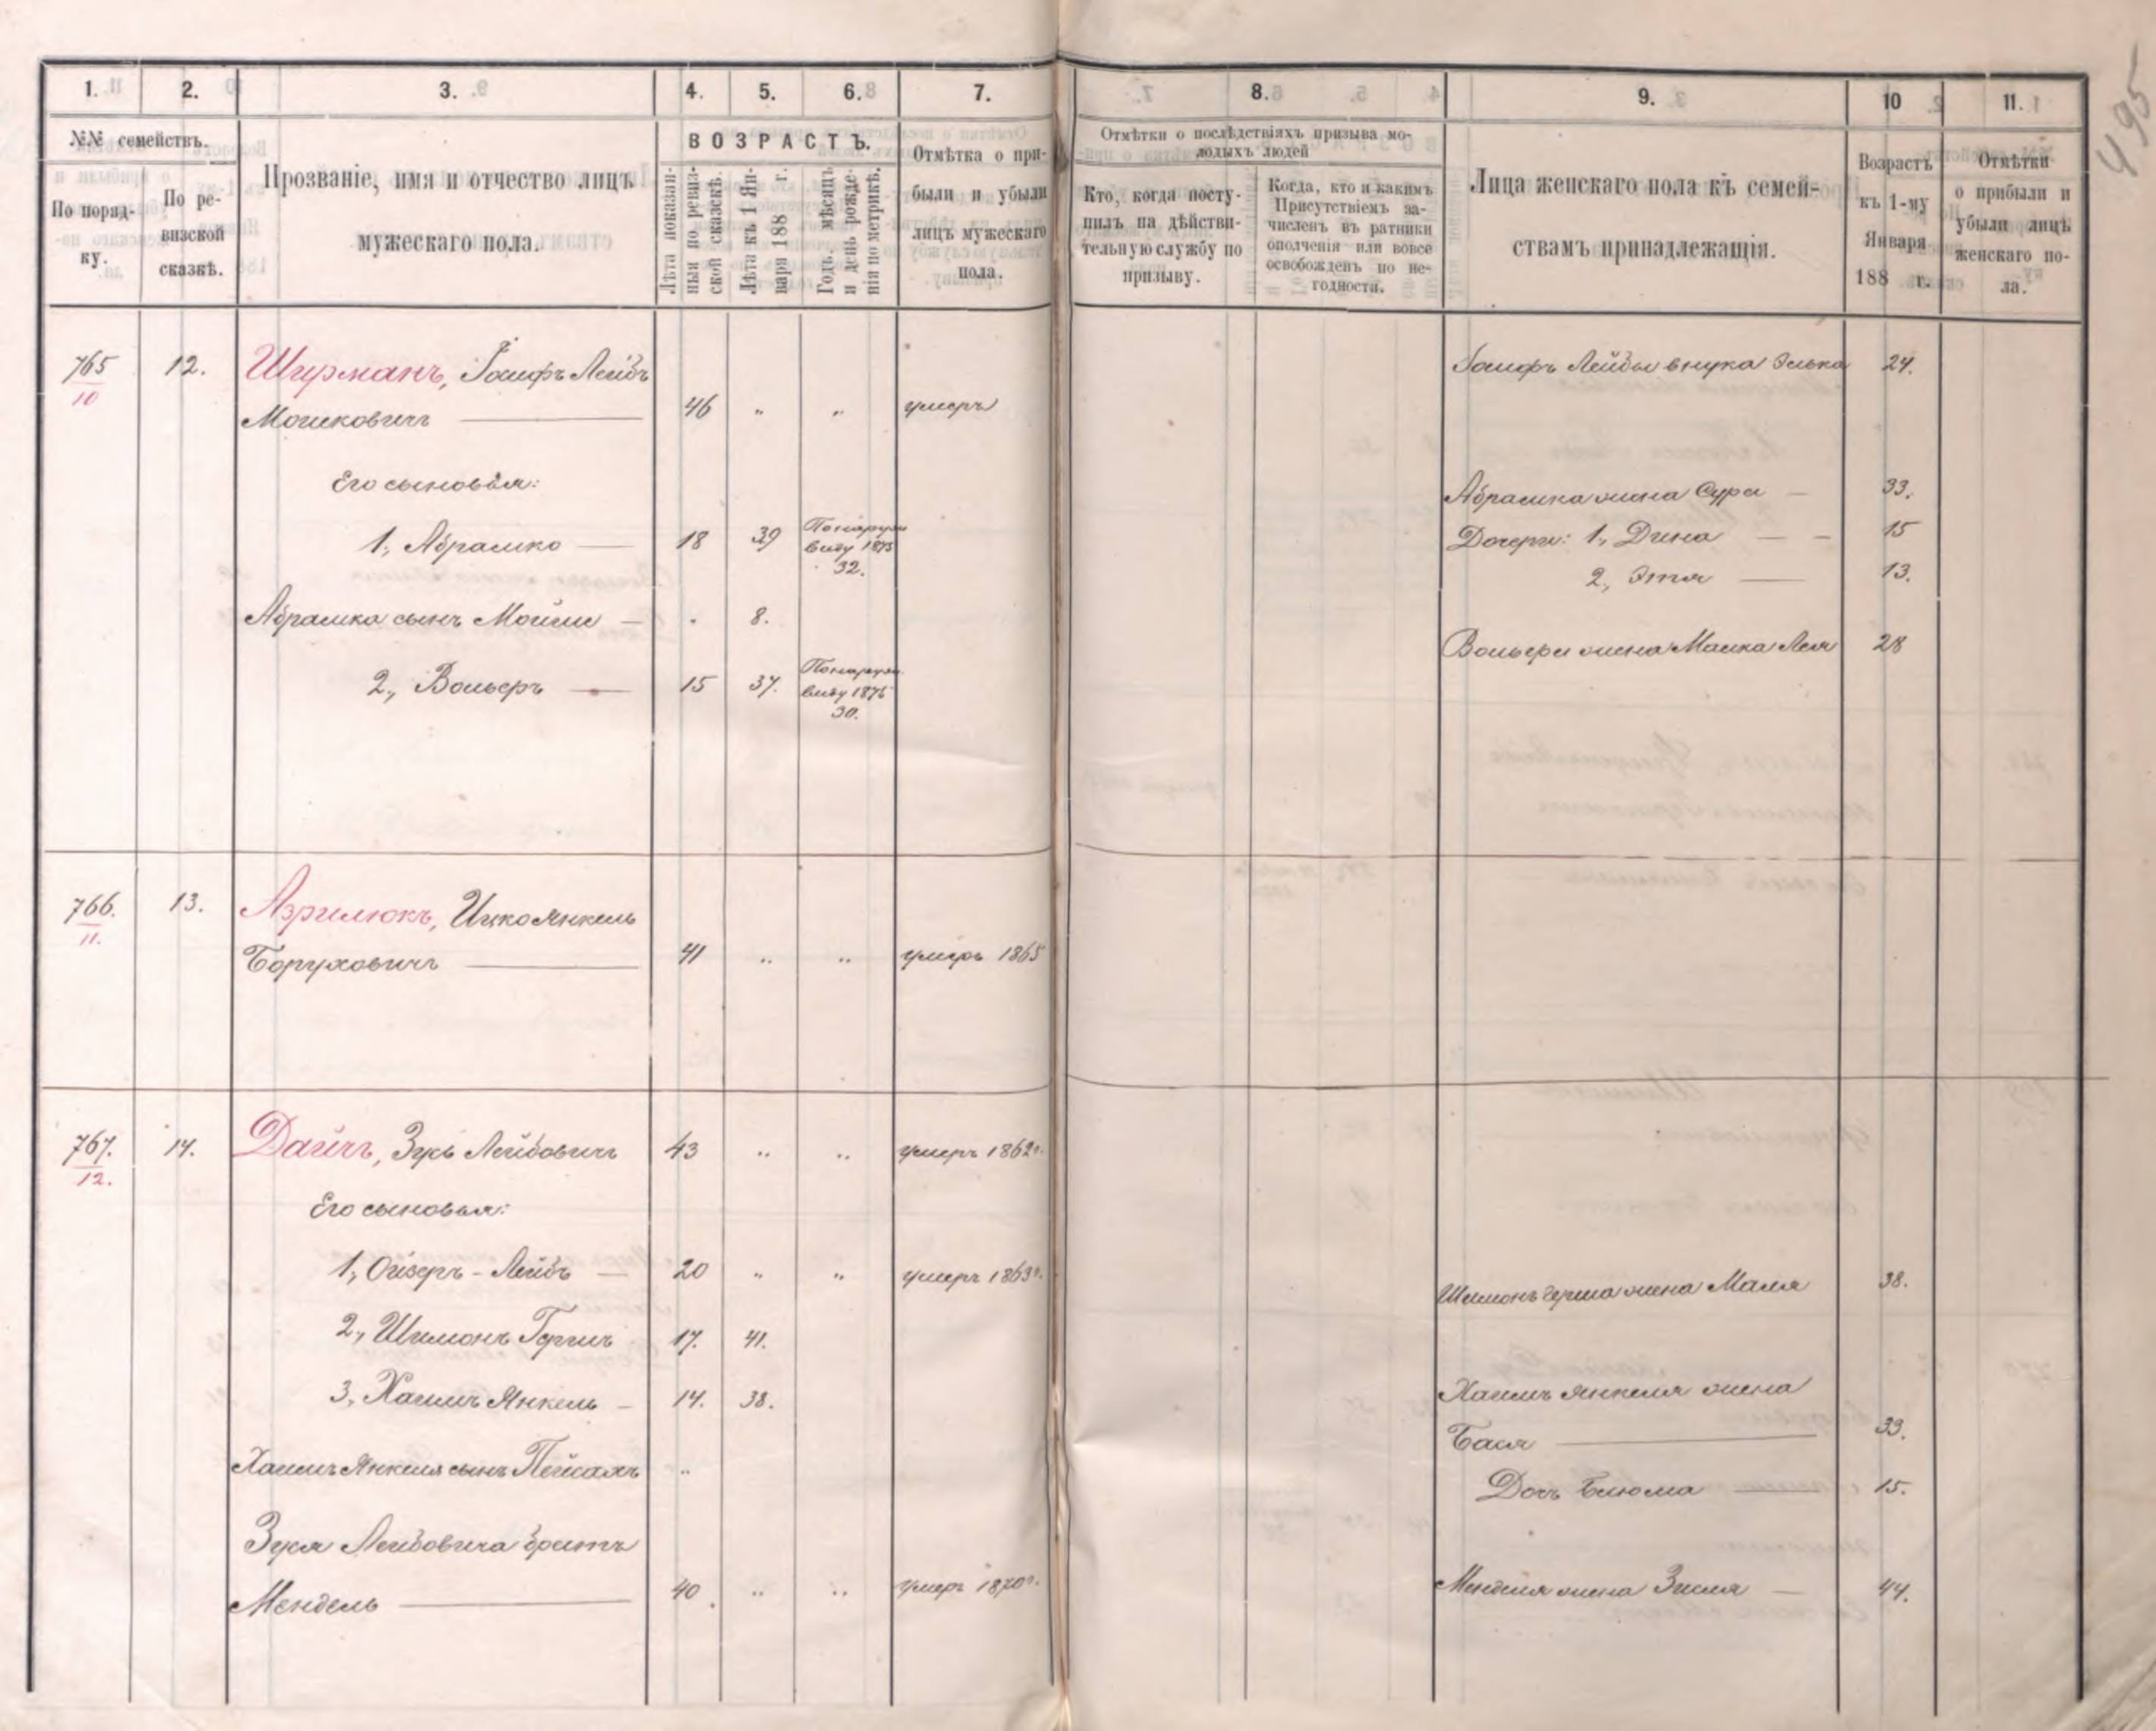 495
1. 2. 3. 4. 5. 6. 7. 8. 9. 10 11.
№№ семействъ.
По поряд-
ку.
По ре-
визской
сказкѣ.
Прозваніе, имя и отчество лицъ
мужескаго пола.
ВОЗРАСТЪ.
Лѣта показан-
ныя по ревиз-
ской сказскѣ.
Лѣта къ 1 Ян-
варя 188 г.
Годъ, мѣсяцъ
и день рожде-
нія по метрикѣ.
Отмѣтка о при-
были и убыли
лицъ мужескаго
пола.
Отмѣтки о послѣдствіяхъ призыва мо-
лодыхъ людей
Кто, когда посту-
пилъ на дѣйстви-
тельную службу по
призыву.
Когда, кто и какимъ
Присутствіемъ за-
численъ въ ратники
ополченія или вовсе
освобожденъ по не-
годности.
Лица женскаго пола къ семей-
ствамъ принадлежащія.
Возрастъ
къ 1-му
Января
188 г.
Отмѣтки
о прибыли и
убыли лицъ
женскаго по-
ла.
765 12. Шурманъ, Іосифъ Лейбъ
10
Мошковичъ 46 " " умеръ
Его сыновья:
1, Абрамко 18 39 По наруж
виду 1875
32.
Абрамка сынъ Мойше 8.
2, Вольеръ 15 37. По наруж.
виду 1875
30.
Іосифъ Лейбы внука Элька 24.
Абрамка жена Сура 33.
Дочери: 1, Дина 15
2, Этя 13.
Вольера жена Малка Лея 28
766. 13. Азрилюкъ, Ицко Янкель
11.
Боруховичъ 41 " " умеръ 1865
767. 14. Дайчъ, Зусь Лейбовичъ 43 " " умеръ 1862г.
12.
Его сыновья:
1, Ойзеръ-Лейбъ 20 " " умеръ 1863г.
2, Шимонъ Гершъ 17. 41.
3, Хаимъ Янкель 14. 38.
Хаимъ Янкеля сынъ Пейсахъ "
Зуся Лейбовича братъ
Мендель 40 " " умеръ 1870г.
Шимонъ Герша жена Маля 38.
Хаимъ Янкеля жена
Бася 33.
Дочь Блюма 15.
Менделя жена Зисля 44.